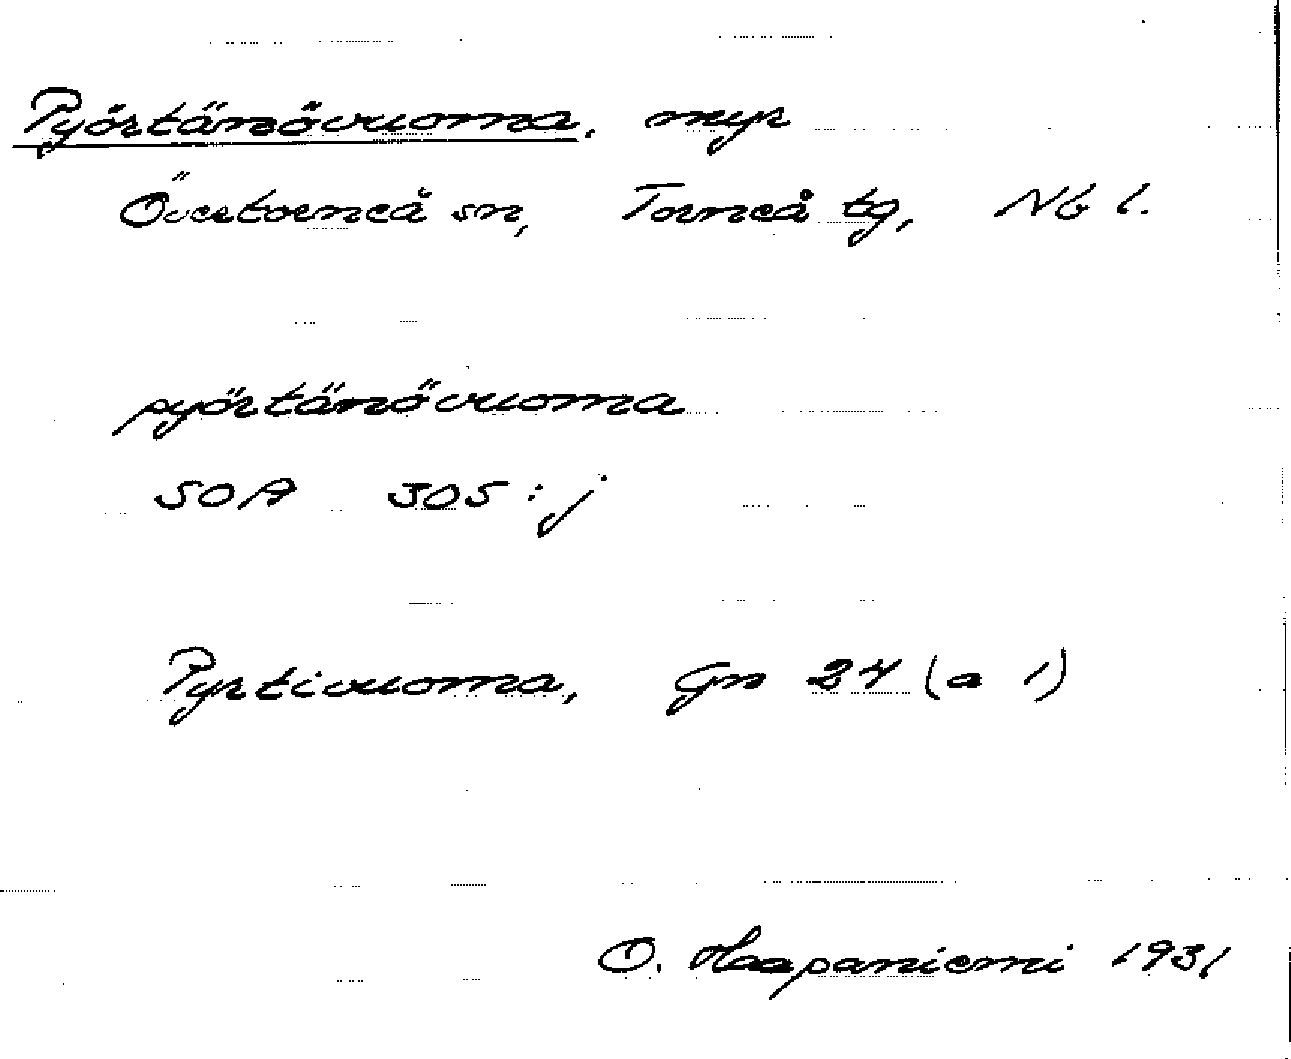 Pyörtänövuoma, myr
Övertorneå sn, Torneå tg, Nb l.
pyörtänövuoma
SOA 305:j
Pyrtivuoma, Gn 24 (a 1)
O. Haapaniemi 1931